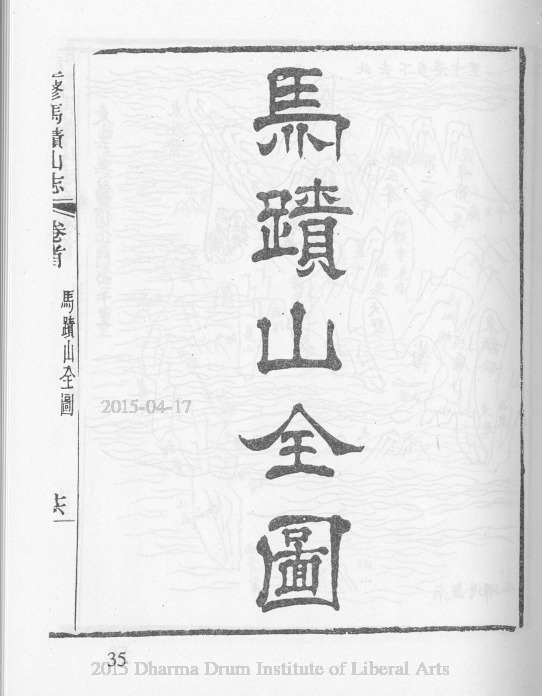 馬蹟山全圖
修馬蹟山志
卷首
馬蹟山全圖
2015-04-17
35
2015 Dharma Drum Institute of Liberal Arts